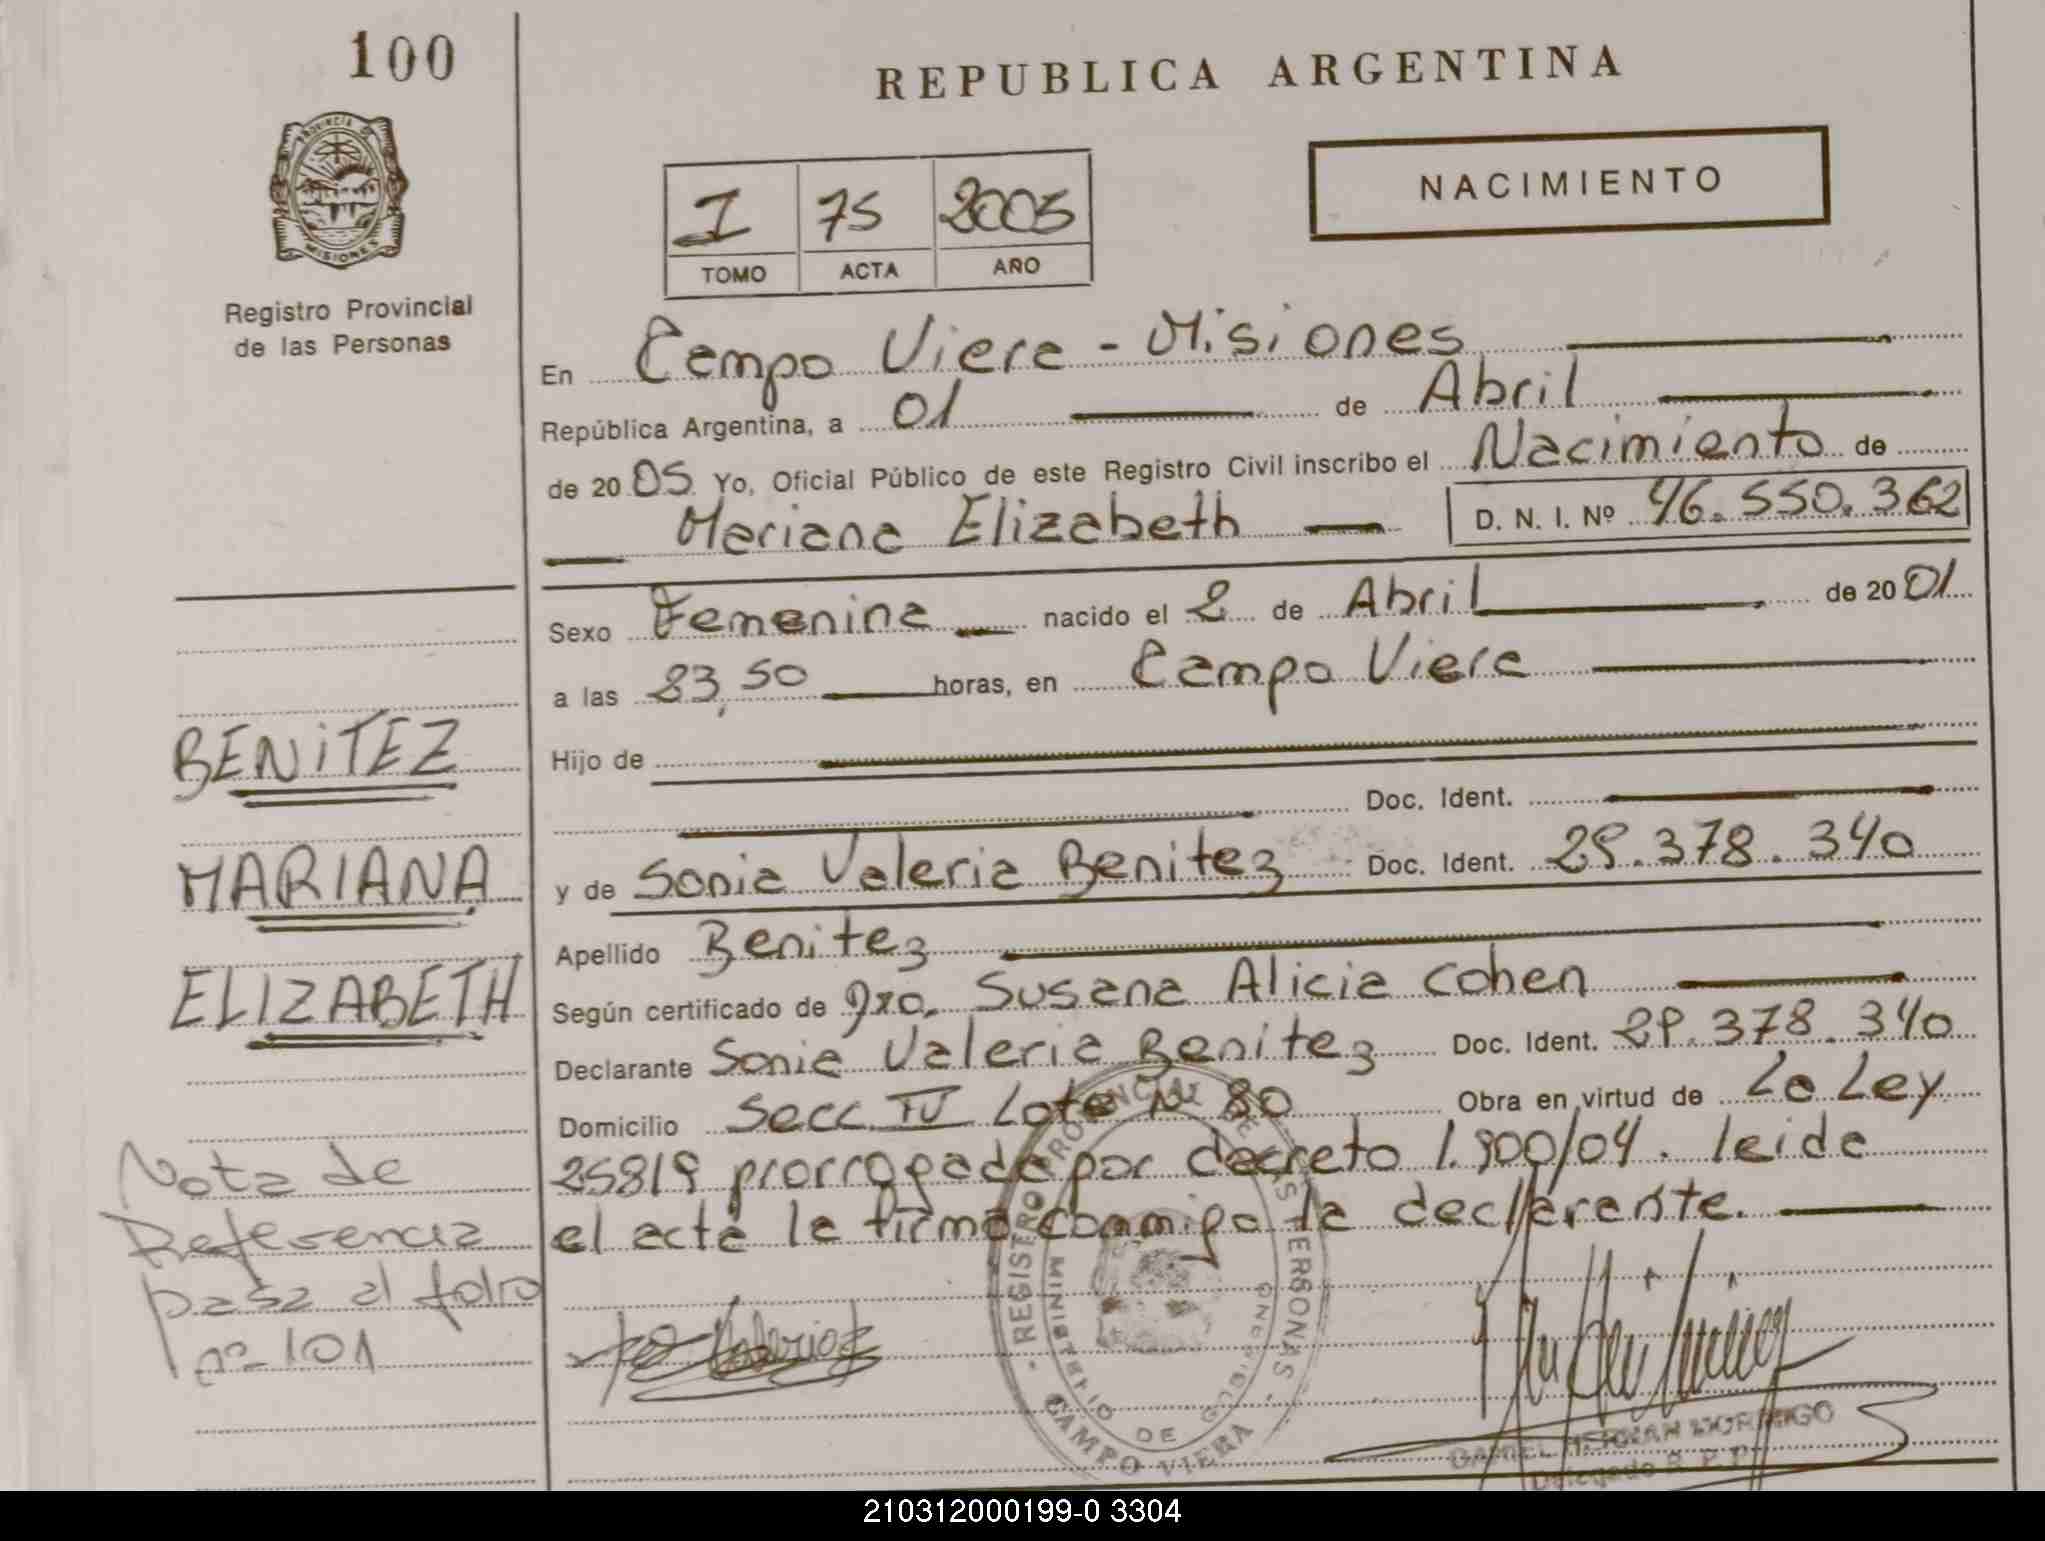 100
REPUBLICA ARGENTINA
PROVINCIA DE
MISIONES
Registro Provincial
de las Personas
NACIMIENTO
I 75 2005
TOMO ACTA AÑO
En Campo Viera - Misiones
República Argentina, a 01 de Abril
de 2005 Yo, Oficial Público de este Registro Civil inscribo el Nacimiento de
Mariana Elizabeth D. N. I. Nº 46.550.362
Sexo Femenina nacido el 2 de Abril de 2001
a las 23,50 horas, en Campo Viera
BENITEZ
Hijo de
Doc. Ident.
MARIANA
y de Sonia Valeria Benitez Doc. Ident. 29.378.340
Apellido Benitez
ELIZABETH
Según certificado de Dra. Susana Alicia Cohen
Declarante Sonia Valeria Benitez Doc. Ident. 29.378.340
Domicilio Secc. IV Lote Nº 80 Obra en virtud de La Ley
25819 prorrogada por decreto 1.900/04. leida
el acta la firma conmigo la declarante.
Nota de
Referencia
pasa al folio
nº 101
REGISTRO PROVINCIAL DE LAS PERSONAS
MINISTERIO DE GOBIERNO
CAMPO VIERA
Delegado R. P. P.
210312000199-0 3304